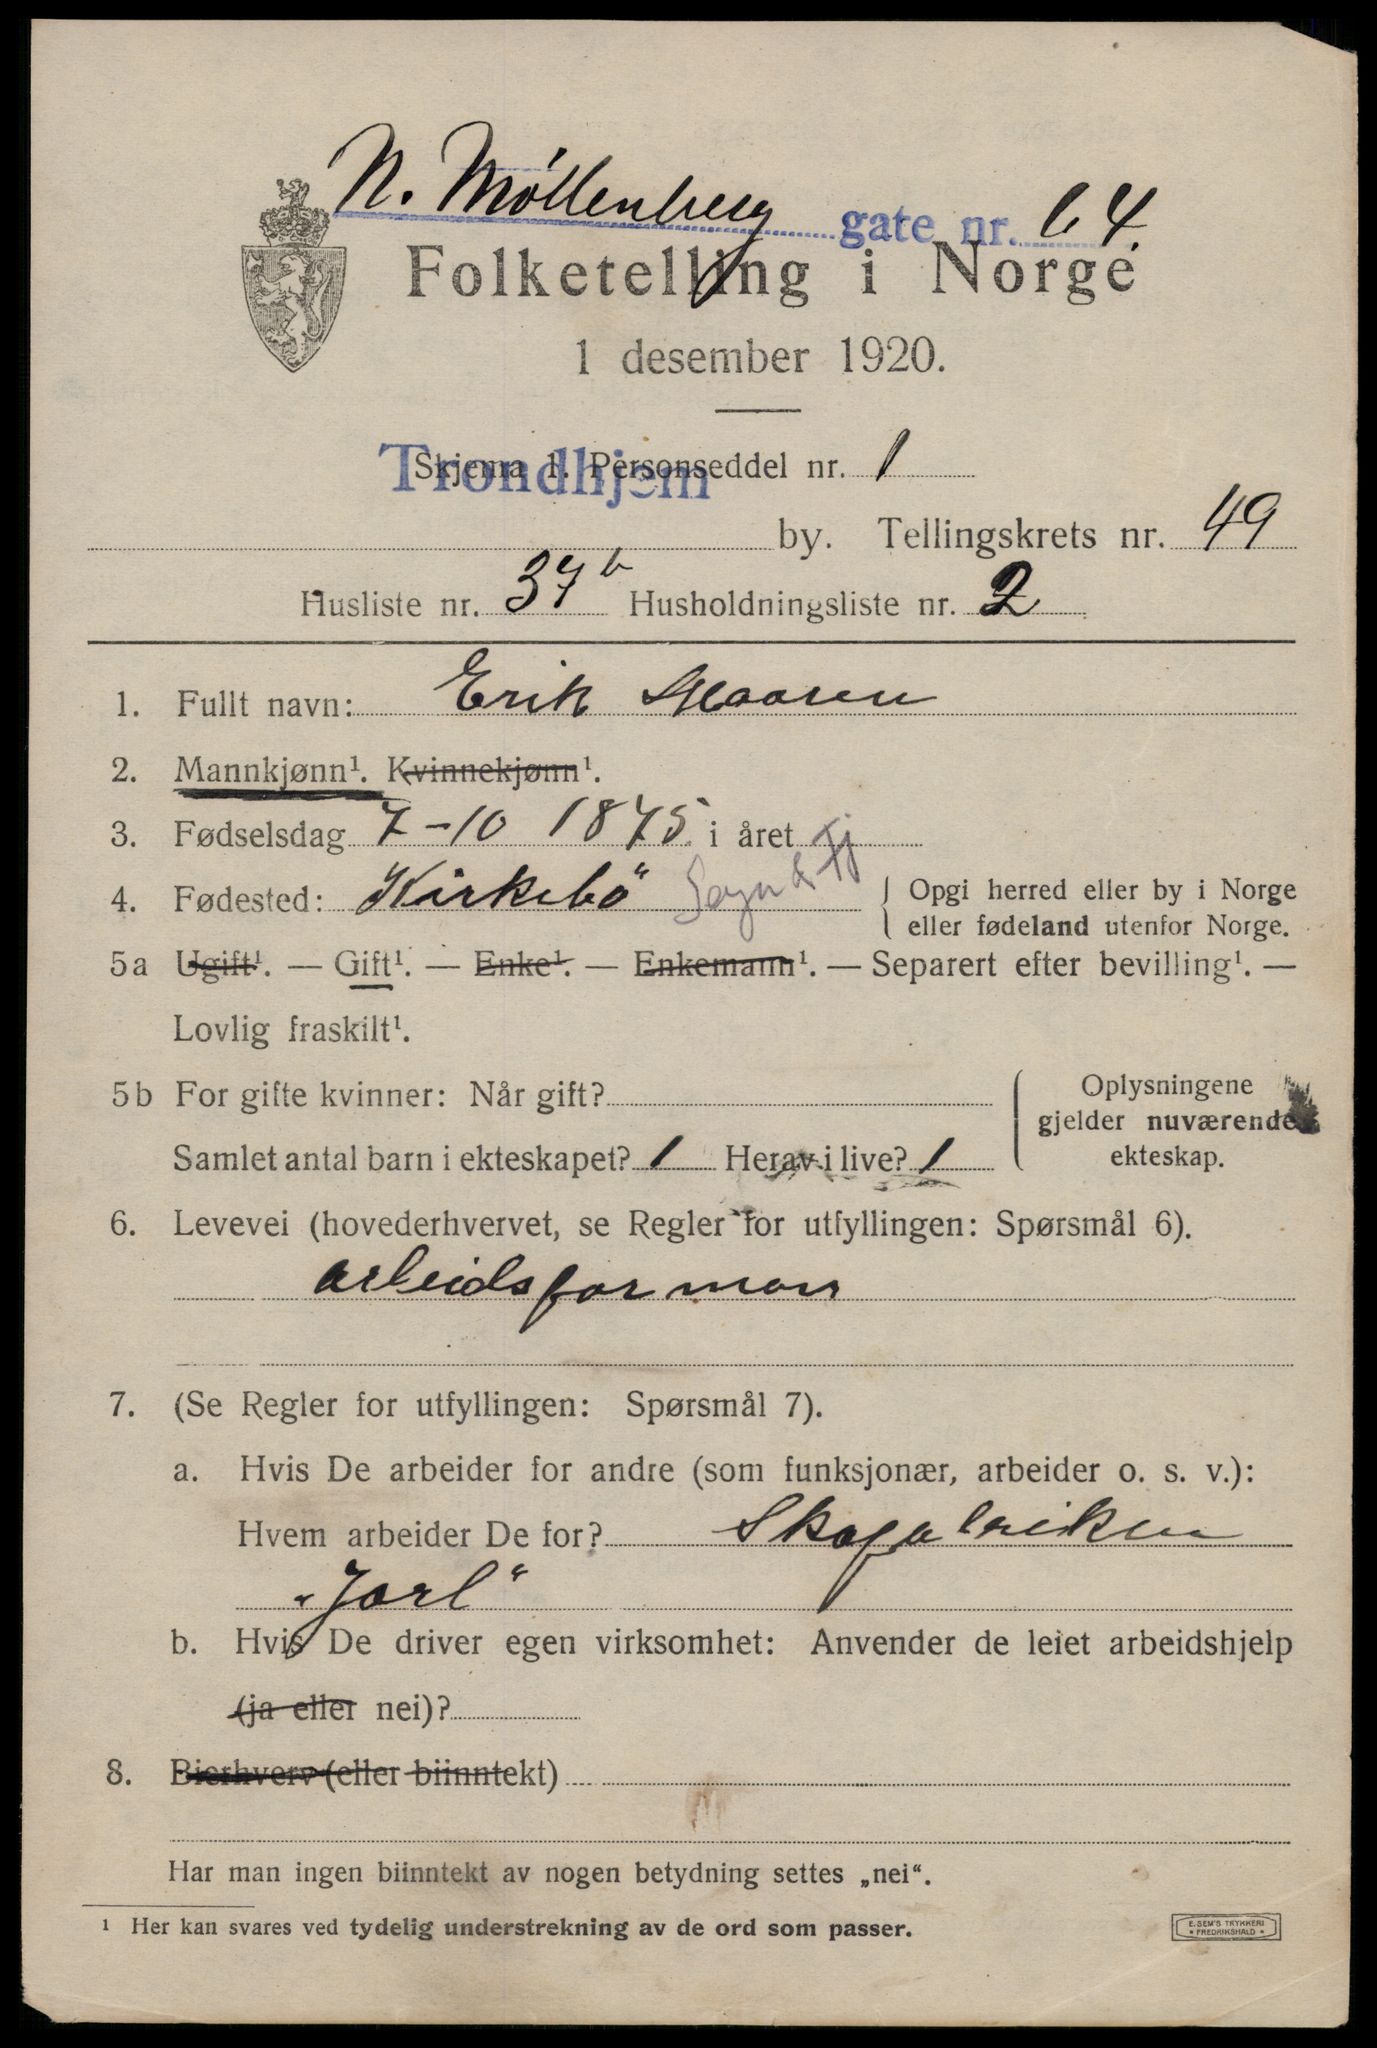 N. Möllenberg gate nr. 64.
Folketelling i Norge
1 desember 1920.
Skjema 1. Personseddel nr. 1
Trondhjem
by. Tellingskrets nr. 49
Husliste nr. 37b Husholdningsliste nr. 2
1. Fullt navn: Erik
2. Mannkjønn¹. Kvinnekjønn¹.
3. Fødselsdag 7-10 1875 i året
4. Fødested: Kirkebö Sogn & Fj { Opgi herred eller by i Norge
eller fødeland utenfor Norge.
5a Ugift¹. — Gift¹. — Enke¹. — Enkemann¹. — Separert efter bevilling¹. —
Lovlig fraskilt¹.
5b For gifte kvinner: Når gift?
Samlet antal barn i ekteskapet? 1 Herav i live? 1
Oplysningene
gjelder nuværende
ekteskap.
6. Levevei (hovederhvervet, se Regler for utfyllingen: Spørsmål 6).
arbeidsformann
7. (Se Regler for utfyllingen: Spørsmål 7).
a. Hvis De arbeider for andre (som funksjonær, arbeider o. s. v.):
Hvem arbeider De for? Skofabriken
"Jarl"
b. Hvis De driver egen virksomhet: Anvender de leiet arbeidshjelp
(ja eller nei)?
8. Bierhverv (eller biinntekt)
Har man ingen biinntekt av nogen betydning settes „nei“.
¹ Her kan svares ved tydelig understrekning av de ord som passer.
E. SEM'S TRYKKERI
* FREDRIKSHALD *